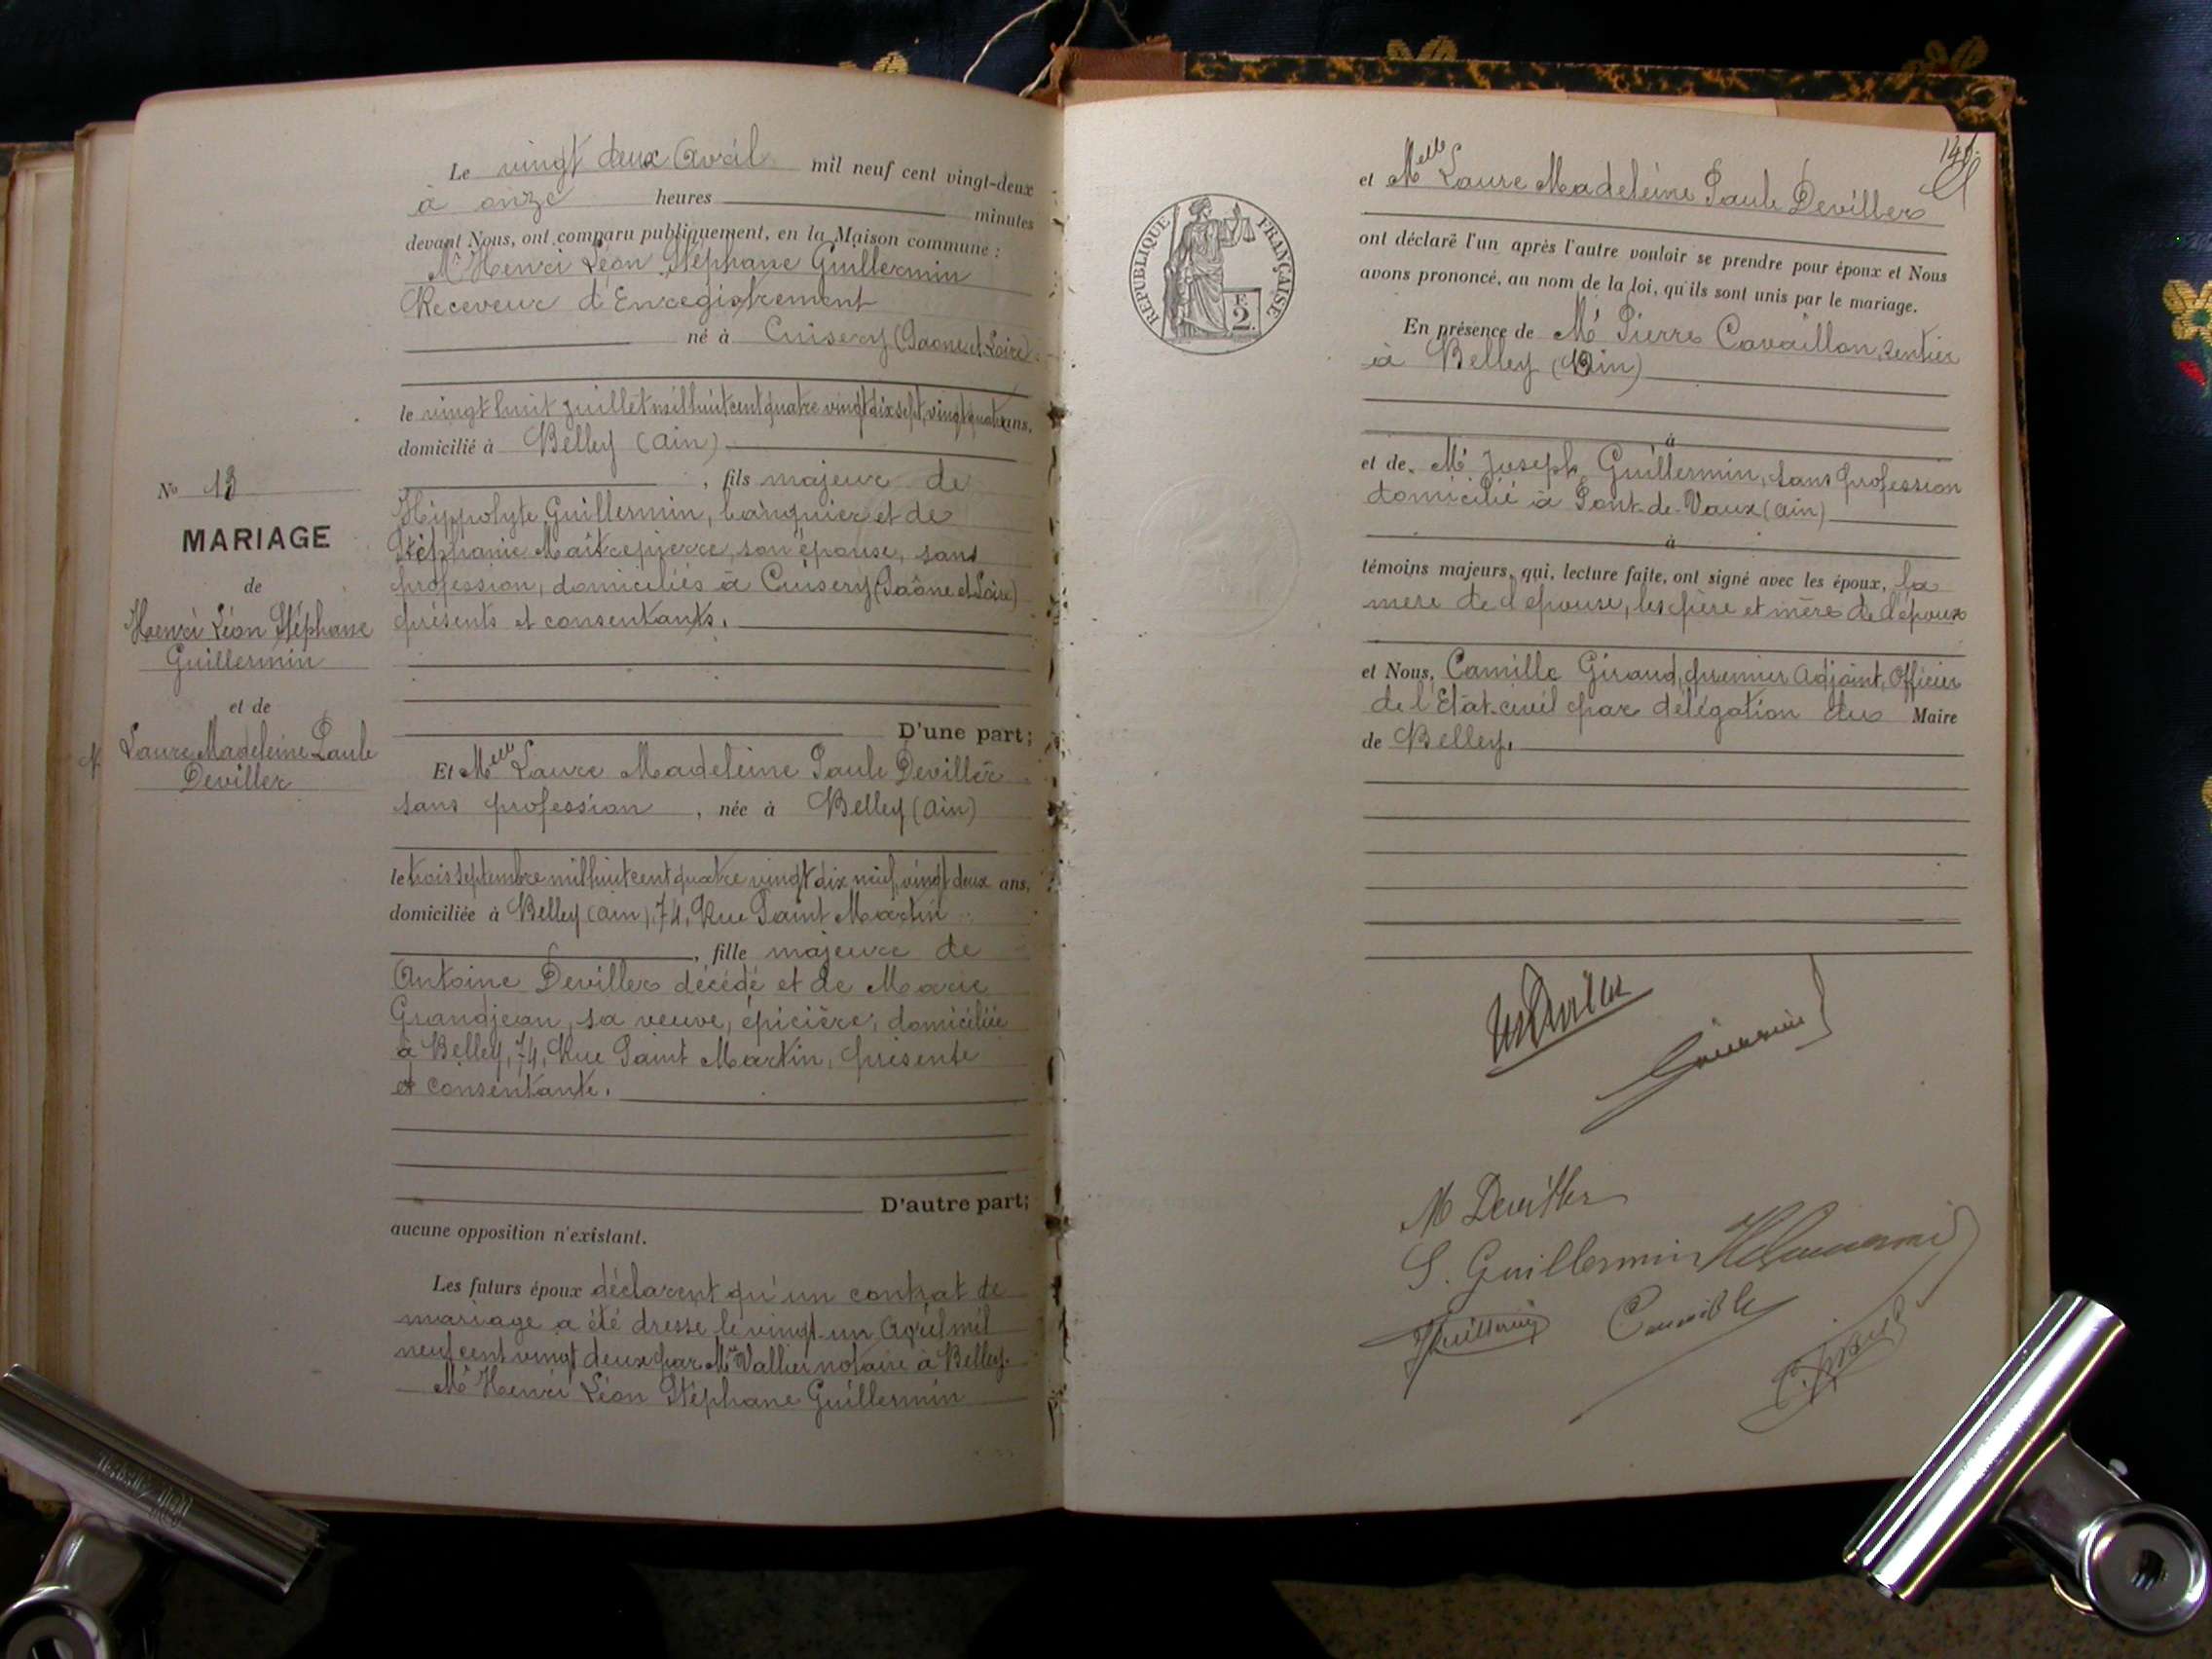 Le vingt deux Avril mil neuf cent vingt-deux
à onze heures minutes
devant Nous, ont comparu publiquement, en la Maison commune :
Mr Henri Léon Stéphane Guillermin
Receveur d'Enregistrement
né à Cuisery (Saone et Loire)
le vingt huit juillet mil huit cent quatre vingt dix sept, vingt quatre ans,
domicilié à Belley (Ain)
, fils majeur de
Hippolyte Guillermin, banquier et de
Stéphanie Maîtrepierre, son épouse, sans
profession, domiciliés à Cuisery (Saône et Loire)
présents et consentants.
D'une part;
Et Melle Laure Madeleine Paule Deviller
sans profession, née à Belley (Ain)
le trois septembre mil huit cent quatre vingt dix neuf, vingt deux ans,
domiciliée à Belley (Ain), 74, Rue Saint Martin
, fille majeure de
Antoine Deviller décédé et de Marie
Grandjean, sa veuve, épicière, domiciliée
à Belley, 74, Rue Saint Martin, présente
et consentante.
D'autre part;
aucune opposition n'existant.
Les futurs époux déclarent qu'un contrat de
mariage a été dressé le vingt-un Avril mil
neuf cent vingt deux par Me Vallier notaire à Belley.
Mr Henri Léon Stéphane Guillermin
No 13
MARIAGE
de
Henri Léon Stéphane
Guillermin
et de
Laure Madeleine Paule
Deviller
RÉPUBLIQUE FRANÇAISE
F.
2.
et Melle Laure Madeleine Paule Deviller
ont déclaré l'un après l'autre vouloir se prendre pour époux et Nous
avons prononcé, au nom de la loi, qu'ils sont unis par le mariage.
En présence de Mr Pierre Cavaillon, rentier
à Belley (Ain)
à
et de Mr Joseph Guillermin, sans profession
domicilié à Pont-de-Vaux (Ain)
à
témoins majeurs, qui, lecture faite, ont signé avec les époux, la
mère de l'épouse, les père et mère de l'époux
et Nous, Camille Giraud, premier Adjoint, Officier
de l'Etat-civil par délégation du Maire
de Belley.
Deviller
Guillermin
M Deviller
S. Guillermin
Guillermin